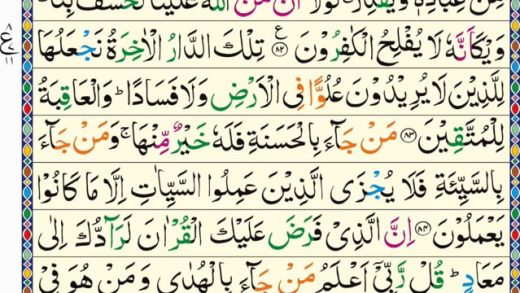 مِنْ عِبَادِهٖ وَيَقْدِرُ ۚ لَوْلَاۤ اَنْ مَّنَّ اللّٰهُ عَلَيْنَا لَخَسَفَ بِنَا ؕ
وَيْكَاَنَّهٗ لَا يُفْلِحُ الْكٰفِرُوْنَ ﴿۸۲﴾ ع تِلْكَ الدَّارُ الْاٰخِرَةُ نَجْعَلُهَا
لِلَّذِيْنَ لَا يُرِيْدُوْنَ عُلُوًّا فِى الْاَرْضِ وَلَا فَسَادًا ؕ وَالْعَاقِبَةُ
لِلْمُتَّقِيْنَ ﴿۸۳﴾ مَنْ جَآءَ بِالْحَسَنَةِ فَلَهٗ خَيْرٌ مِّنْهَا ۚ وَمَنْ جَآءَ
بِالسَّيِّئَةِ فَلَا يُجْزَى الَّذِيْنَ عَمِلُوا السَّيِّاٰتِ اِلَّا مَا كَانُوْا
يَعْمَلُوْنَ ﴿۸۴﴾ اِنَّ الَّذِىْ فَرَضَ عَلَيْكَ الْقُرْاٰنَ لَرَآدُّكَ اِلٰى
مَعَادٍ ؕ قُلْ رَّبِّىْۤ اَعْلَمُ مَنْ جَآءَ بِالْهُدٰى وَمَنْ هُوَ فِىْ
۸
ع
۱۱